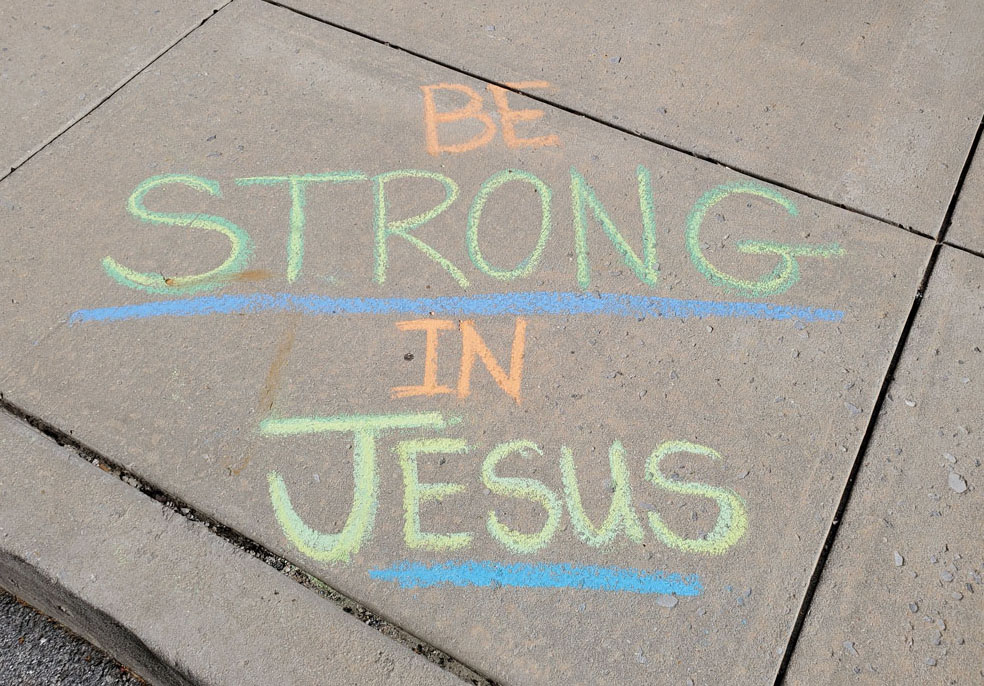 BE
STRONG
IN
JESUS